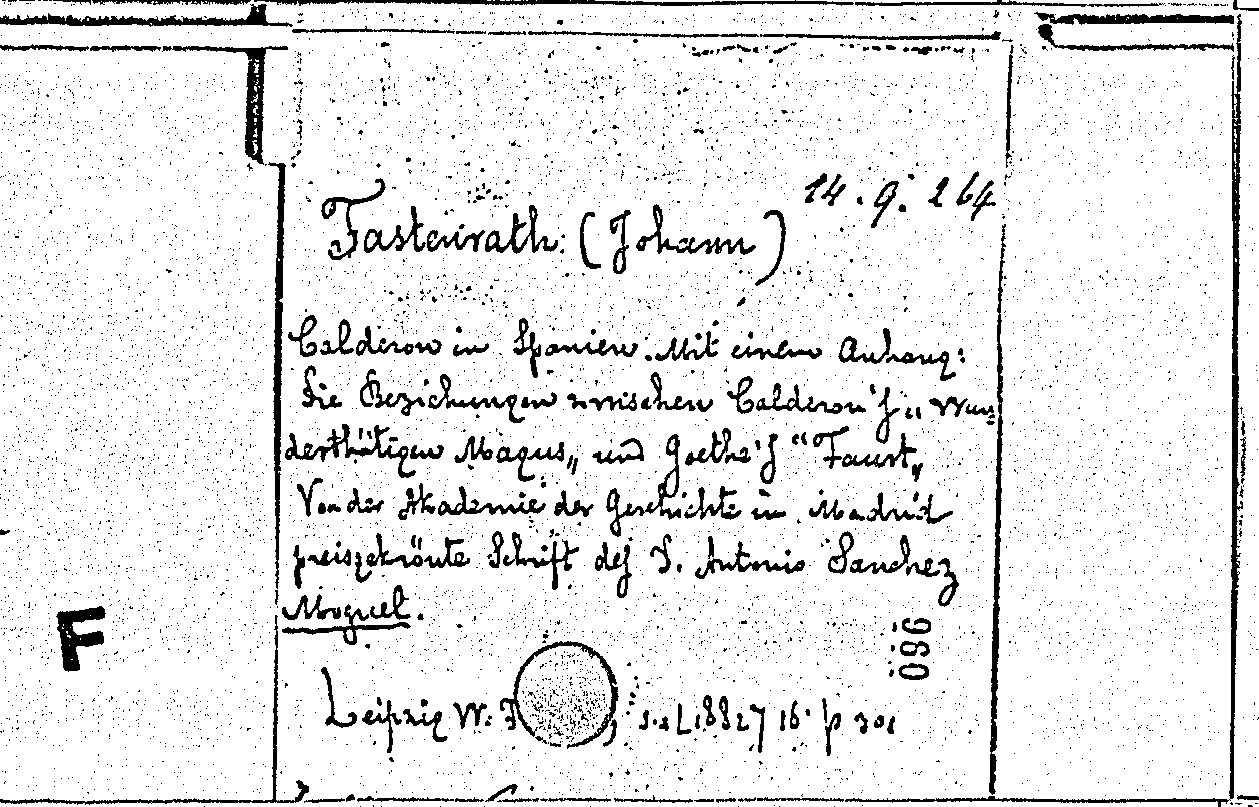 14.9.264
Fastenrath: (Johann)
Calderon in Spanien. Mit einem Anhang:
Die Beziehungen zwischen Calderon's „Wun=
derthätigen Magus„ und Goethe's “Faust„
Von der Akademie der Geschichte in Madrid
preisgekrönte Schrift des D. Antonio Sanchez
Moguel.
096
F
Leipzig W. F s.a [1882] 16° p 301